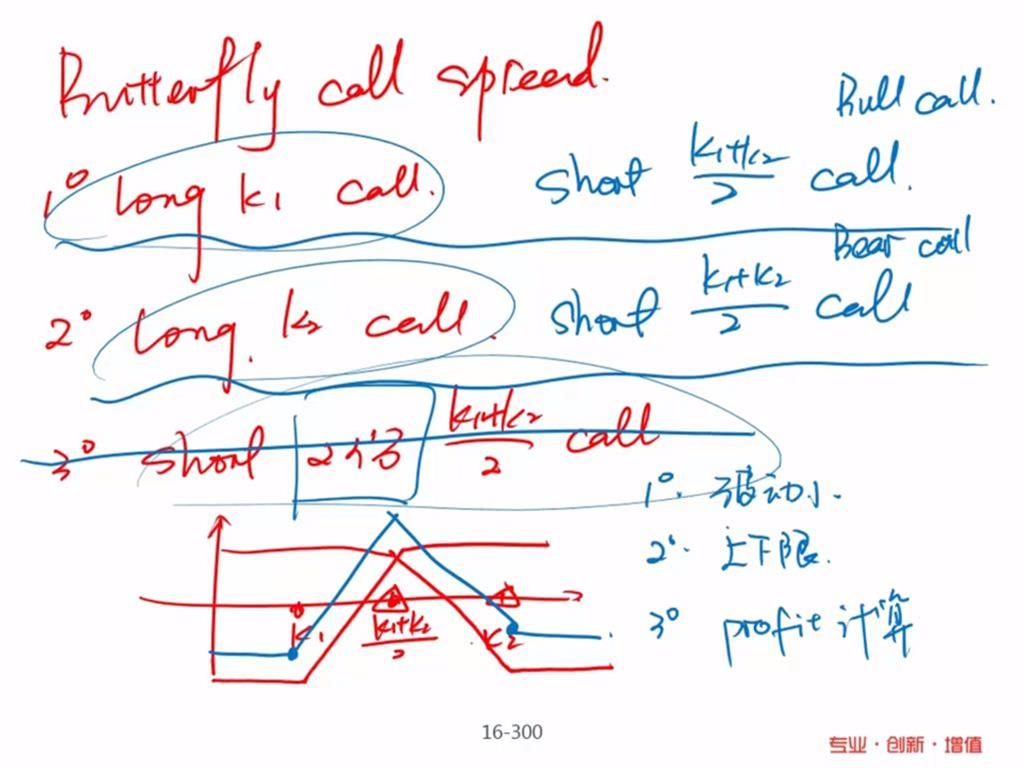 Butterfly call spread.
Bull call.
1° Long K1 call. short K1+K2/2 call.
Bear call
2° Long K2 call. short K1+K2/2 call
3° short 2份 K1+K2/2 call
1°. 波动小.
2°. 上下限.
3° profit 计算
K1 K1+K2/2 K2
16-300
专业·创新·增值